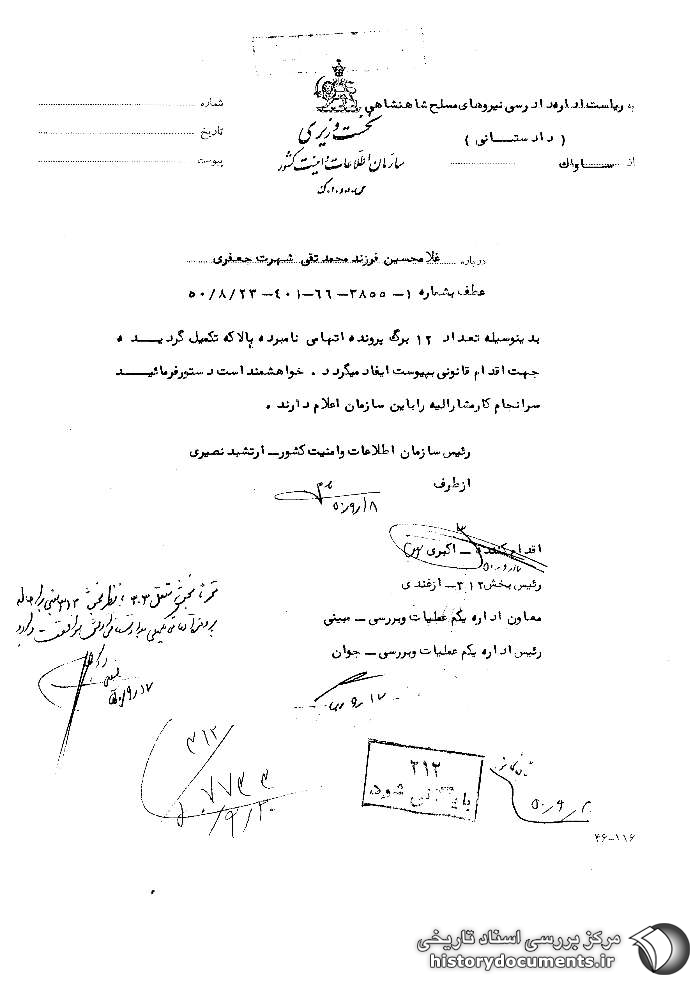 به ریاست اداره دادرسی نیروهای مسلح شاهنشاهی
( دادستانی )
از ساواک
نخست وزیری
سازمان اطلاعات و امنیت کشور
شماره
تاریخ
پیوست
درباره غلامحسین فرزند محمد تقی شهرت جعفری
عطف بشماره ۱ - ۳۸۵۵ - ۶۶ - ۴۰۱ - ۵۰/۸/۲۳
بدینوسیله تعداد ۱۲ برگ پرونده اتهامی نامبرده بالا که تکمیل گردیـــده
جهت اقدام قانونی بپیوست ایفاد میگردد . خواهشمند است دستور فرمائیـــد
سرانجام کار مشارالیه را باین سازمان اعلام دارند .
رئیس سازمان اطلاعات و امنیت کشور - ارتشبد نصیری
از طرف
۵۰/۹/۱۸
اقدام کننده - اکبری
رئیس بخش ۳۱۲ - ازغندی
معاون اداره یکم عملیات و بررسی - مبینی
رئیس اداره یکم عملیات و بررسی - جوان
۵۰/۹/۱۷
۳۱۲
۷۷۴۳
۹/۲۰
۳۱۲
بایگانی شود
۵۰/۹/۲۰
۴۶-۱۱۶
مرکز بررسی اسناد تاریخی
historydocuments.ir